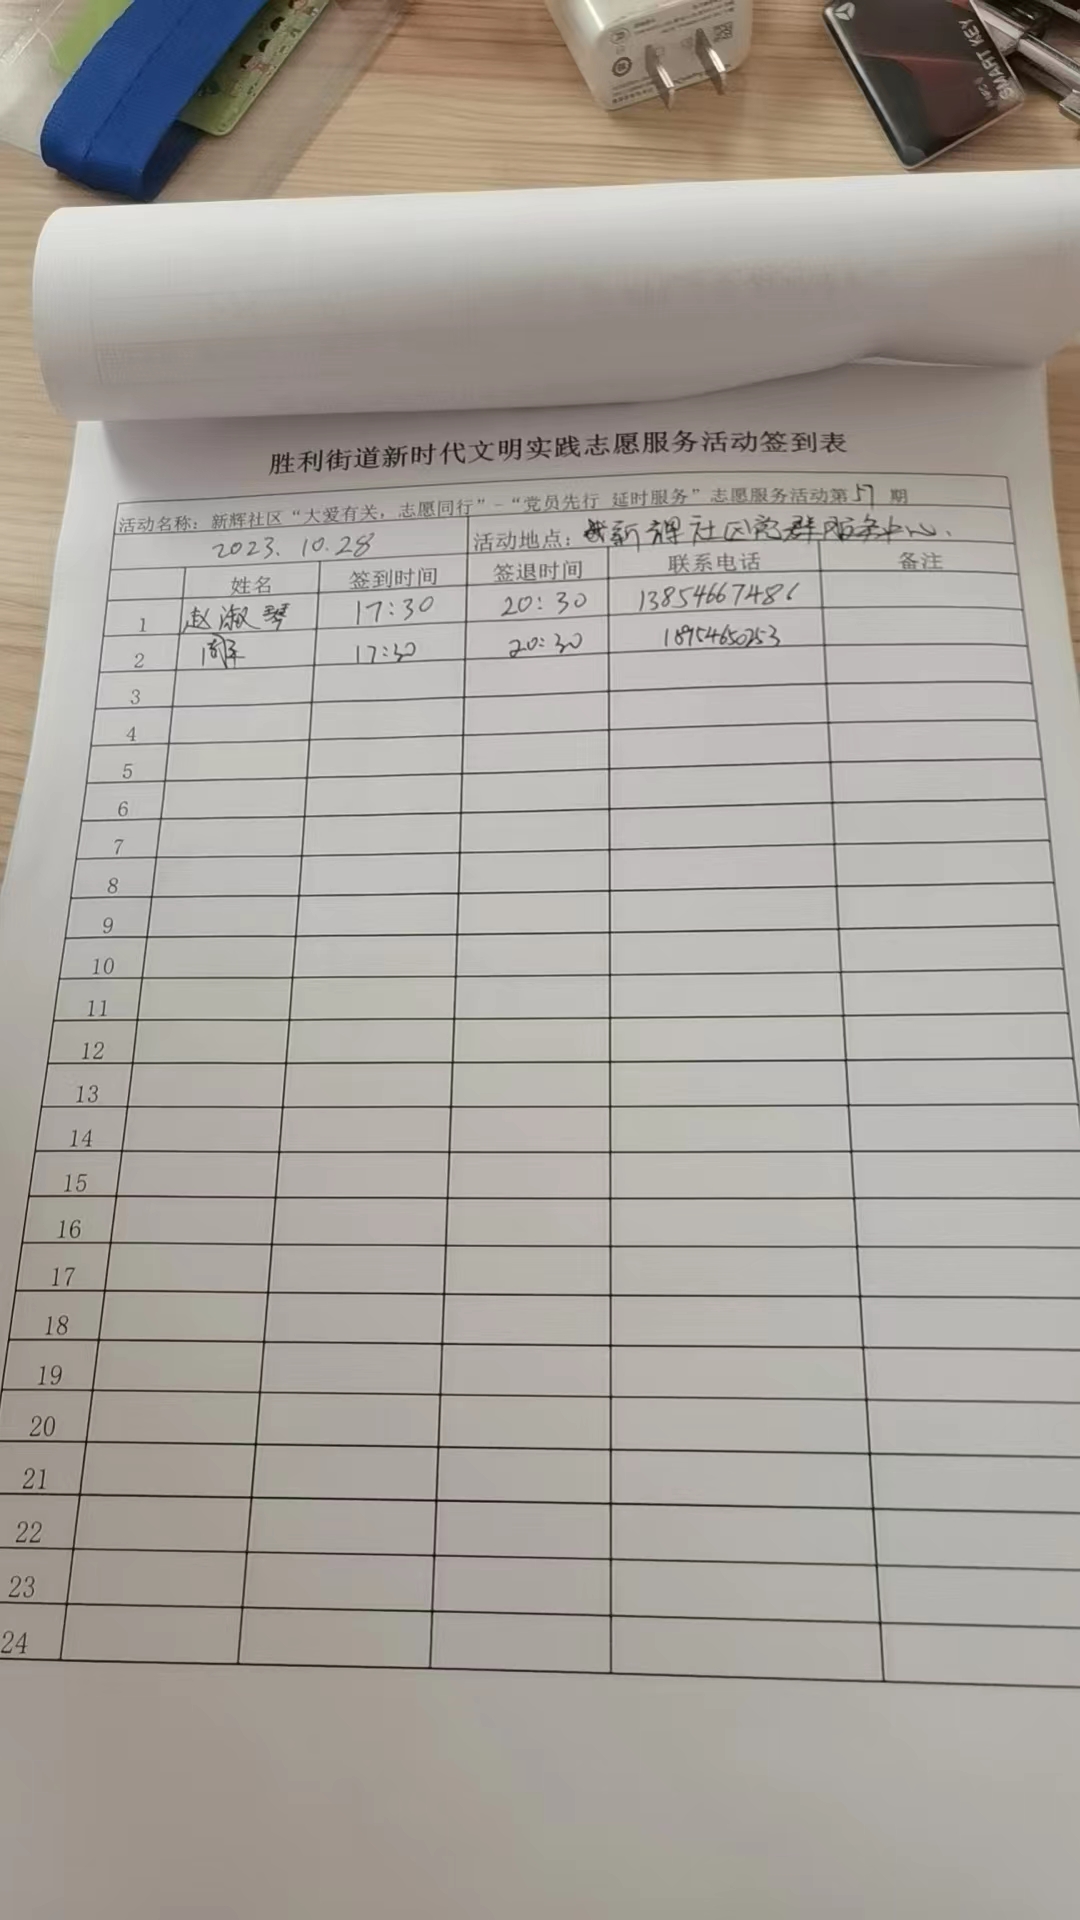 SMART KEY
胜利街道新时代文明实践志愿服务活动签到表
活动名称：新辉社区“大爱有关，志愿同行”-“党员先行 延时服务”志愿服务活动第57期
2023.10.28 活动地点：新辉社区党群服务中心.
姓名 签到时间 签退时间 联系电话 备注
1 赵淑琴 17:30 20:30 13854667486
2 17:30 20:30 18954650253
3
4
5
6
7
8
9
10
11
12
13
14
15
16
17
18
19
20
21
22
23
24